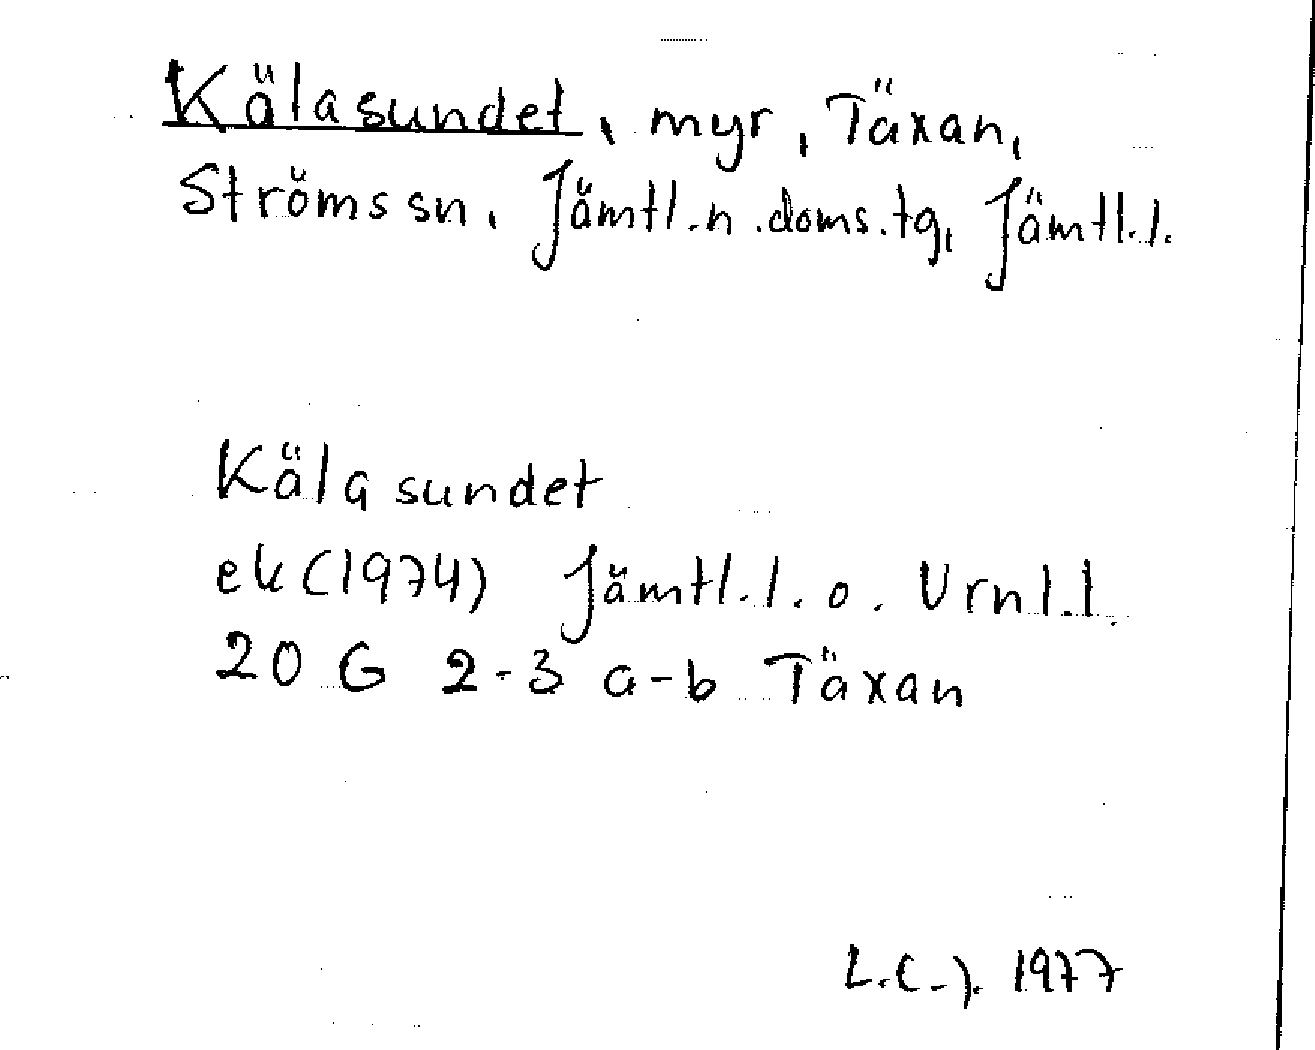 Kälasundet, myr, Täxan,
Ströms sn, Jämtl.n.doms.tg, Jämtl.l.
Kälasundet
ek (1974) Jämtl.l. o. Vrnl.l.
20 G 2-3 a-b Täxan
L.C-J. 1977